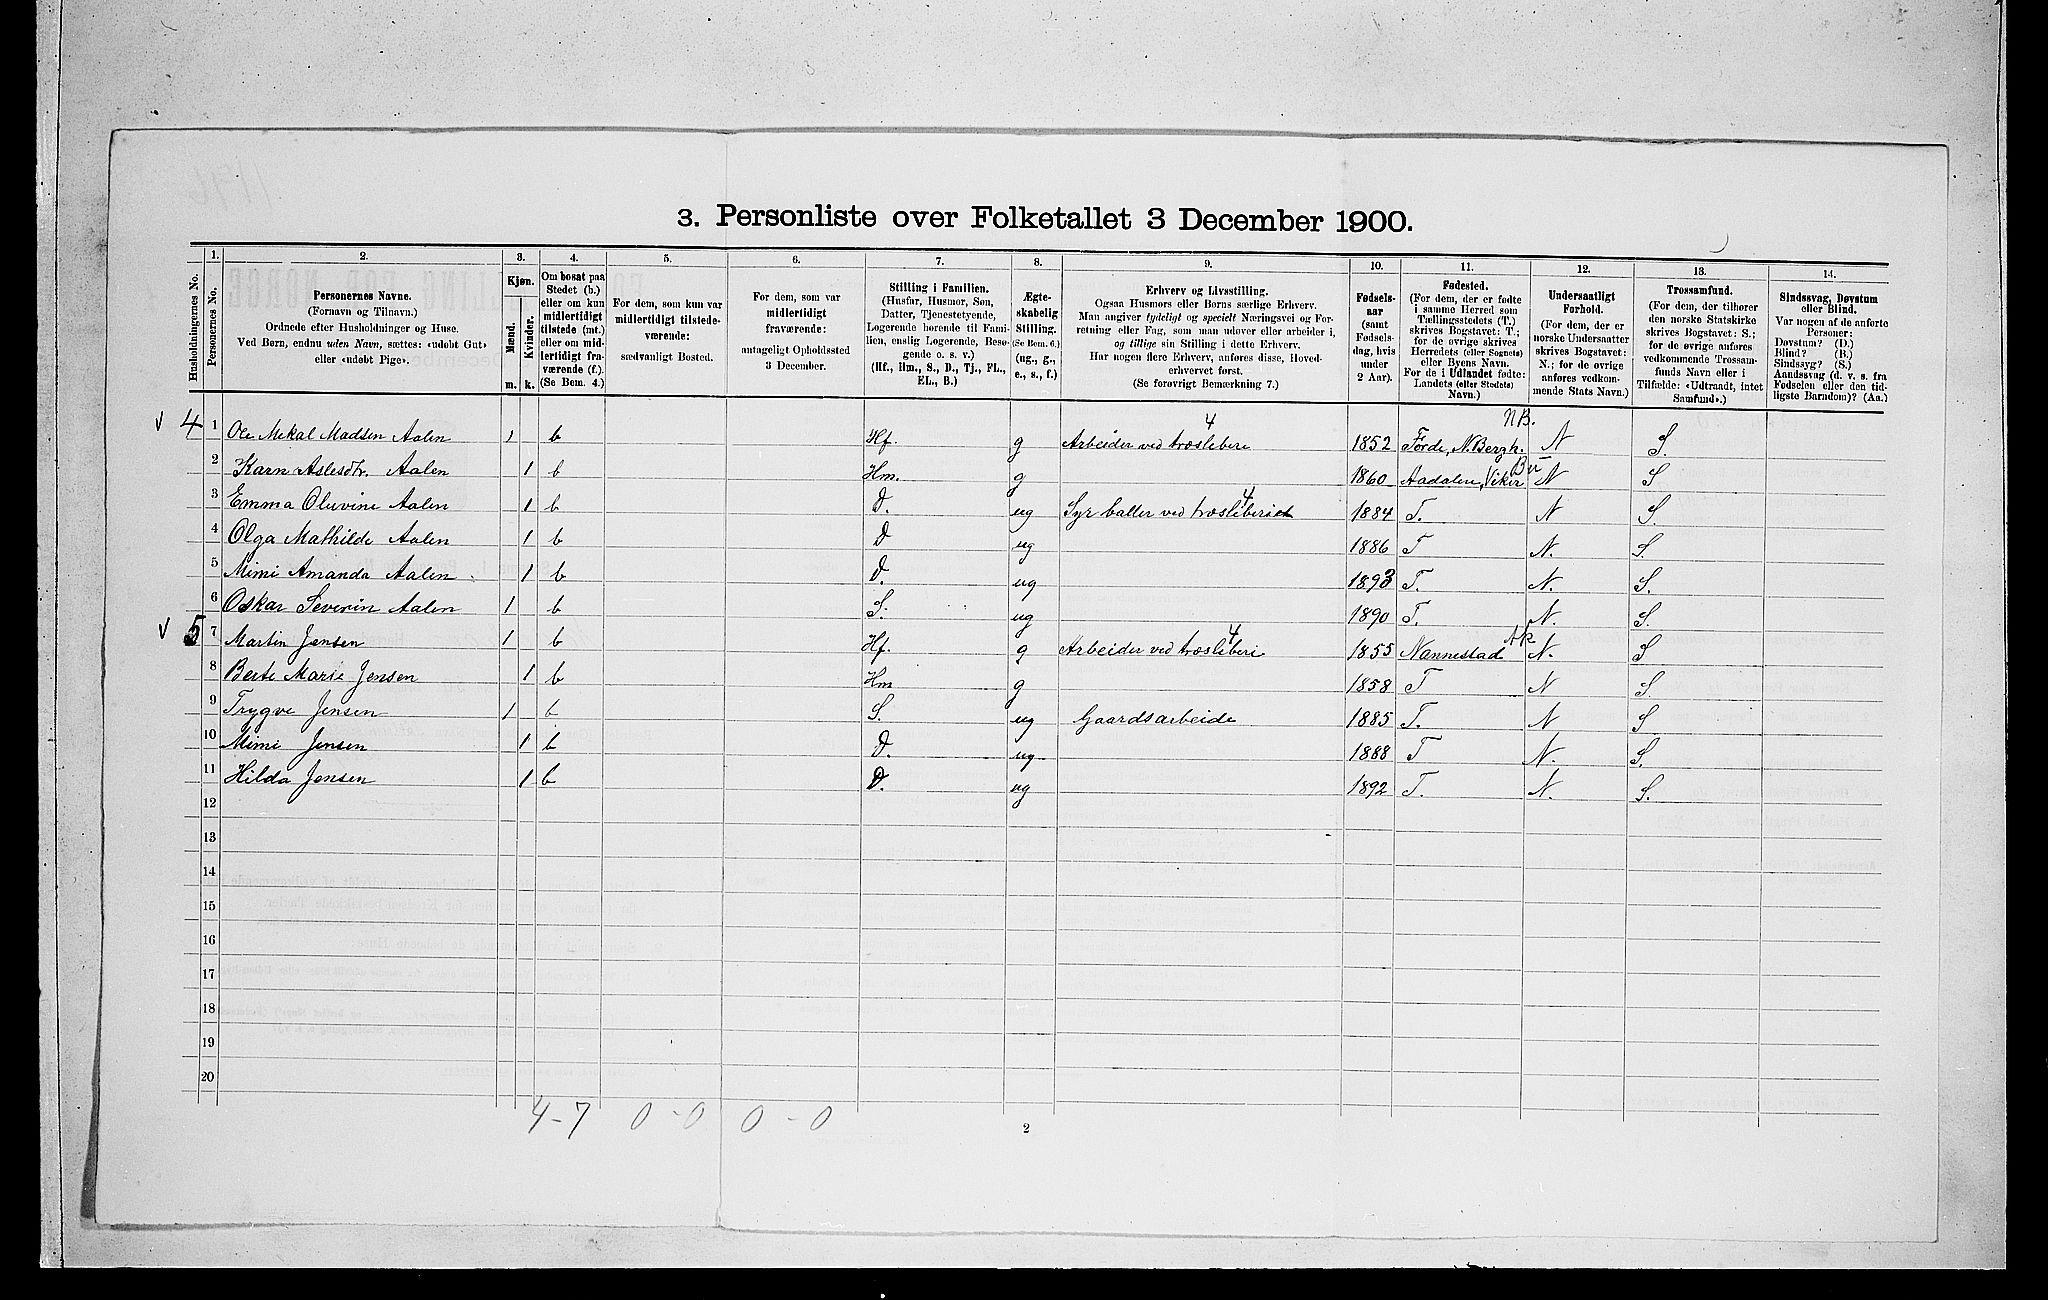 3. Personliste over Folketallet 3 December 1900.
Husholdningernes No.
1.
Personernes No.
2.
Personernes Navne.
(Fornavn og Tilnavn.)
Ordnede efter Husholdninger og Huse.
Ved Børn, endnu uden Navn, sættes: «udøbt Gut»
eller «udøbt Pige».
3.
Kjøn.
Mænd.
Kvinder.
m.
k.
4.
Om bosat paa
Stedet (b.)
eller om kun
midlertidigt
tilstede (mt.)
eller om mid-
lertidigt fra-
værende (f.)
(Se Bem. 4.)
5.
For dem, som kun var
midlertidigt tilstede-
værende:
sædvanligt Bosted.
6.
For dem, som var
midlertidigt
fraværende:
antageligt Opholdssted
3 December.
7.
Stilling i Familien.
(Husfar, Husmor, Søn,
Datter, Tjenestetyende,
Logerende hørende til Fami-
lien, enslig Logerende, Besø-
gende o. s. v.)
(Hf., Hm., S., D., Tj., FL.,
EL., B.)
8.
Ægte-
skabelig
Stilling.
(Se Bem. 6.)
(ug., g.,
e., s., f.)
9.
Erhverv og Livsstilling.
Ogsaa Husmors eller Børns særlige Erhverv.
Man angiver tydeligt og specielt Næringsvei og For-
retning eller Fag, som man udøver eller arbeider i,
og tillige sin Stilling i dette Erhverv.
Har nogen flere Erhverv, anføres disse, Hoved-
erhvervet først.
(Se forøvrigt Bemærkning 7.)
10.
Fødsels-
aar
(samt
Fødsels-
dag, hvis
under
2 Aar).
11.
Fødested.
(For dem, der er fødte
i samme Herred som
Tællingsstedets (T.)
skrives Bogstavet: T.;
for de øvrige skrives
Herredets (eller Sognets)
eller Byens Navn.
For de i Udlandet fødte:
Landets (eller Stedets)
Navn.)
12.
Undersaatligt
Forhold.
(For dem, der er
norske Undersaatter
skrives Bogstavet:
N.; for de øvrige
anføres vedkom-
mende Stats Navn.)
13.
Trossamfund.
(For dem, der tilhører
den norske Statskirke
skrives Bogstavet: S.;
for de øvrige anføres
vedkommende Trossam-
funds Navn eller i
Tilfælde: «Udtraadt, intet
Samfund».)
14.
Sindssvag, Døvstum
eller Blind.
Var nogen af de anførte
Personer:
Døvstum? (D.)
Blind? (B.)
Sindssyg? (S.)
Aandssvag (d. v. s. fra
Fødselen eller den tid-
ligste Barndom)? (Aa.)
4 NB.
v 4 1 Ole Mekal Madsen Aalen 1 b Hf. g Arbeider ved træsliberi 1852 Førde, N. Bergh. N S.
Bu
2 Karn Aslesdtr. Aalen 1 b Hm. g 1860 Aadalen, Viker N S
4
3 Emma Oluvine Aalen 1 b D. ug Syr baller ved træsliberiet 1884 T. N S.
4 Olga Mathilde Aalen 1 b D ug 1886 T N. S.
5 Mimi Amanda Aalen 1 b D. ug 1893 T. N. S.
6 Oskar Severin Aalen 1 b S. ug 1890 T. N. S.
4 Ak
v 5 7 Martin Jensen 1 b Hf. g Arbeider ved træsliberi 1855 Nannestad N. S
8 Berte Marie Jensen 1 b Hm g 1858 T N S.
9 Trygve Jensen 1 b S. ug Gaardsarbeide 1885 T. N S
10 Mimi Jensen 1 b D. ug 1888 T N. S.
11 Hilda Jensen 1 b D. ug 1892 T. N. S.
12
13
14
15
16
17
18
19
20
4-7 0-0 0-0
2